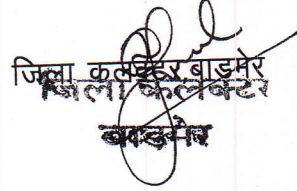 जिला कलक्टर, बाड़मेर
जिला कलेक्टर
बाड़मेर